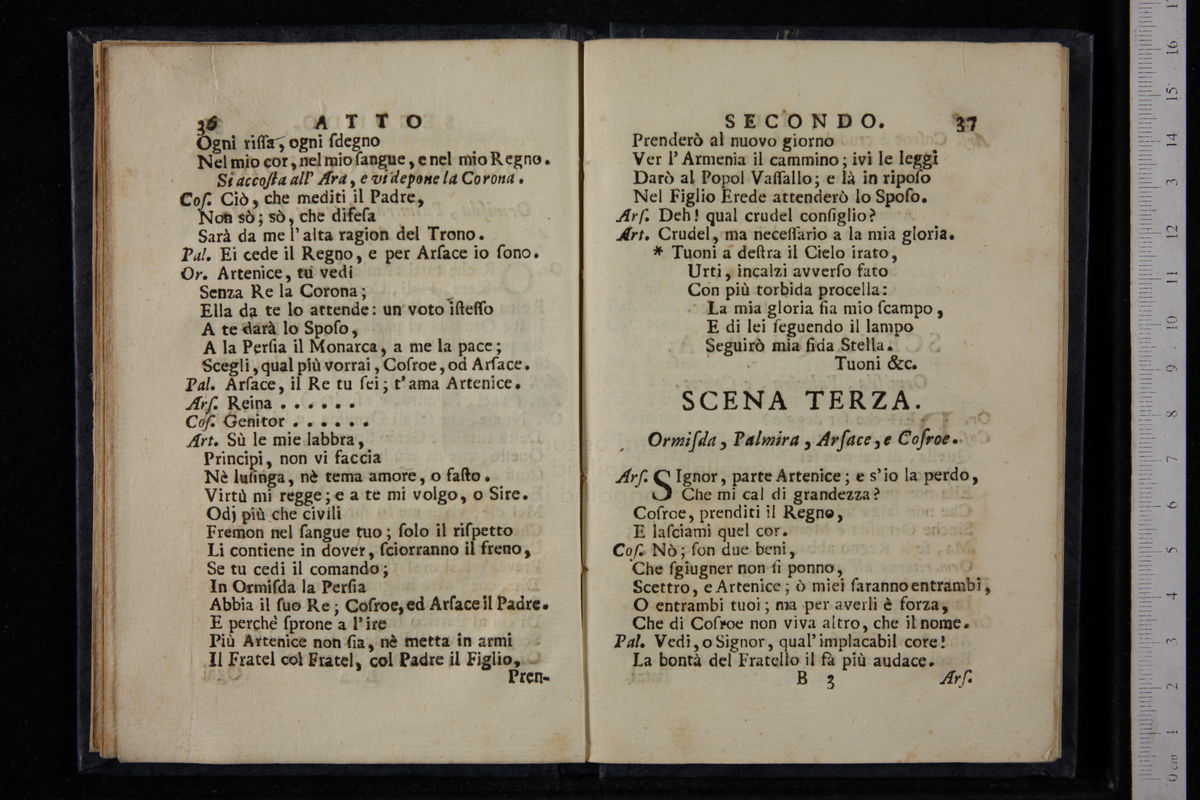 36 ATTO
Ogni riſſa, ogni ſdegno
Nel mio cor, nel mio ſangue, e nel mio Regno.
Si accoſta all' Ara, e vi depone la Corona.
Coſ. Ciò, che mediti il Padre,
Non sò; sò, che difeſa
Sarà da me l'alta ragion del Trono.
Pal. Ei cede il Regno, e per Arſace io ſono.
Or. Artenice, tu vedi
Senza Re la Corona;
Ella da te lo attende: un voto iſteſſo
A te darà lo Spoſo,
A la Perſia il Monarca, a me la pace;
Scegli, qual più vorrai, Coſroe, od Arſace.
Pal. Arſace, il Re tu ſei; t'ama Artenice.
Arſ. Reina . . . . . .
Coſ. Genitor . . . . . .
Art. Sù le mie labbra,
Principi, non vi faccia
Nè luſinga, nè tema amore, o faſto.
Virtù mi regge; e a te mi volgo, o Sire.
Odj più che civili
Fremon nel ſangue tuo; ſolo il riſpetto
Li contiene in dover, ſciorranno il freno,
Se tu cedi il comando;
In Ormiſda la Perſia
Abbia il ſuo Re; Coſroe, ed Arſace il Padre.
E perchè ſprone a l'ire
Più Artenice non ſia, nè metta in armi
Il Fratel col Fratel, col Padre il Figlio,
Pren-
SECONDO. 37
Prenderò al nuovo giorno
Ver l'Armenia il cammino; ivi le leggi
Darò al Popol Vaſſallo; e là in ripoſo
Nel Figlio Erede attenderò lo Spoſo.
Arſ. Deh! qual crudel conſiglio?
Art. Crudel, ma neceſſario a la mia gloria.
* Tuoni a deſtra il Cielo irato,
Urti, incalzi avverſo fato
Con più torbida procella:
La mia gloria ſia mio ſcampo,
E di lei ſeguendo il lampo
Seguirò mia fida Stella.
Tuoni &c.
SCENA TERZA.
Ormiſda, Palmira, Arſace, e Coſroe.
Arſ. SIgnor, parte Artenice; e s'io la perdo,
Che mi cal di grandezza?
Coſroe, prenditi il Regno,
E laſciami quel cor.
Coſ. Nò; ſon due beni,
Che ſgiugner non ſi ponno,
Scettro, e Artenice; ò miei ſaranno entrambi,
O entrambi tuoi; ma per averli è forza,
Che di Coſroe non viva altro, che il nome.
Pal. Vedi, o Signor, qual' implacabil core!
La bontà del Fratello il fà più audace.
B 3 Arſ.